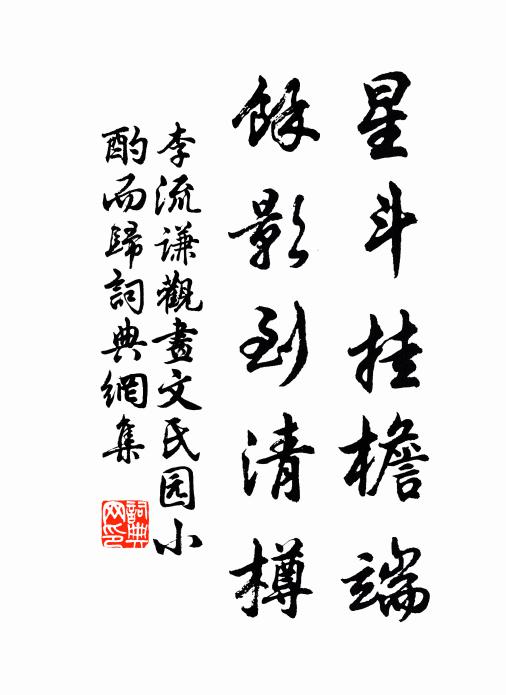 星斗挂檐端
餘影到清樽
李流谦觀畫文氏园小
酌而歸詞典網集
詞典网印